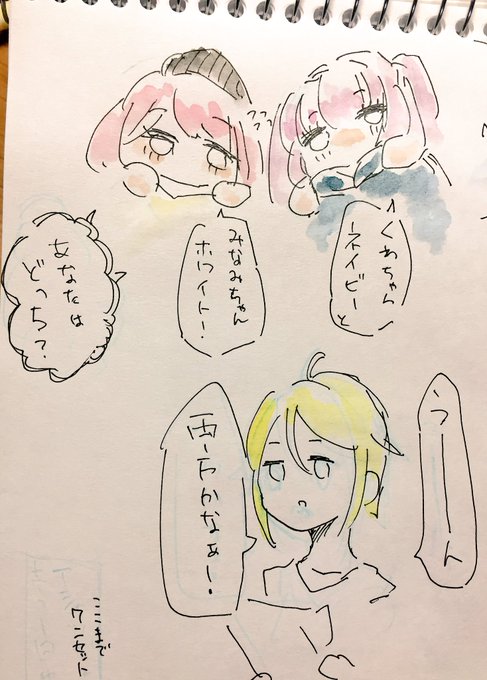 くわちゃん
ネイビーと
みなみちゃん
ホワイト！
あなたは
どっち？
うーーん
両方かなぁー！
ここまで
ワンセット